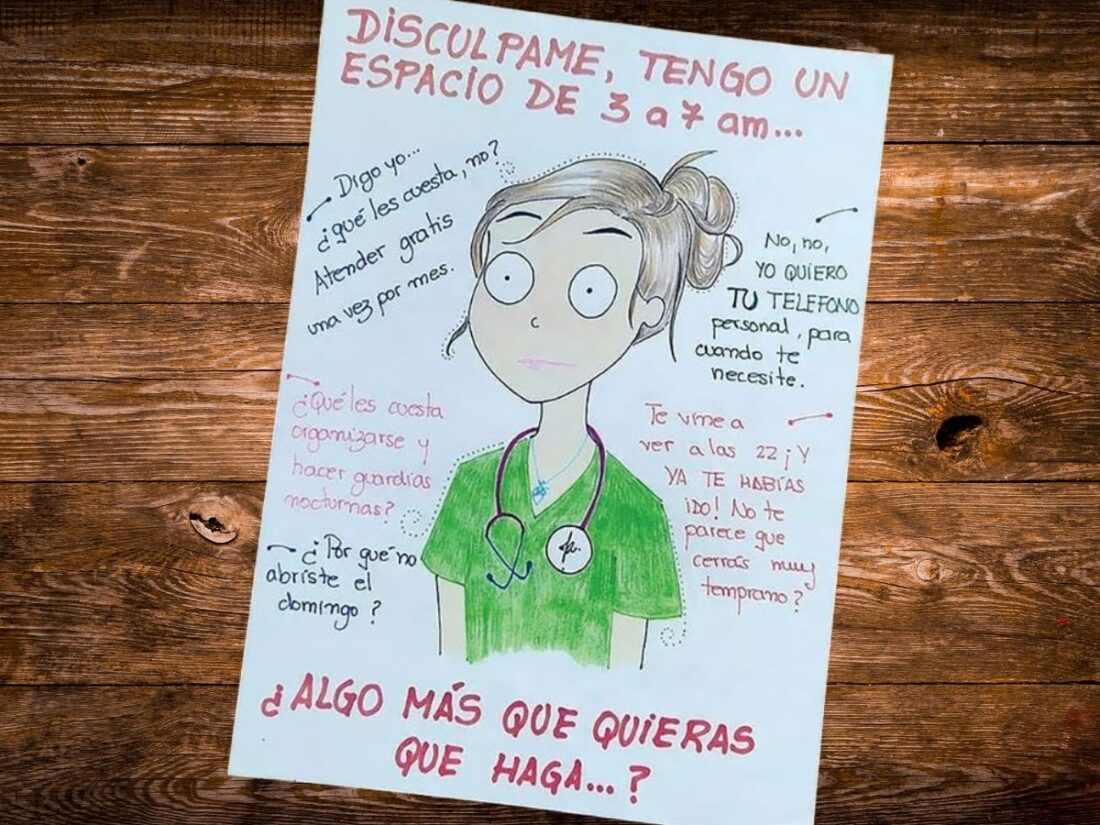 DISCULPAME, TENGO UN
ESPACIO DE 3 a 7 am...
Digo yo...
¿qué les cuesta, no?
Atender gratis
una vez por mes.
No, no,
YO QUIERO
TU TELEFONO
personal, para
cuando te
necesite.
¿Qué les cuesta
organizarse y
hacer guardias
nocturnas?
Te vine a
ver a las 22 ¡Y
YA TE HABÍAS
IDO! No te
parece que
cerrás muy
temprano?
¿Por qué no
abriste el
domingo?
¿ALGO MÁS QUE QUIERAS
QUE HAGA...?